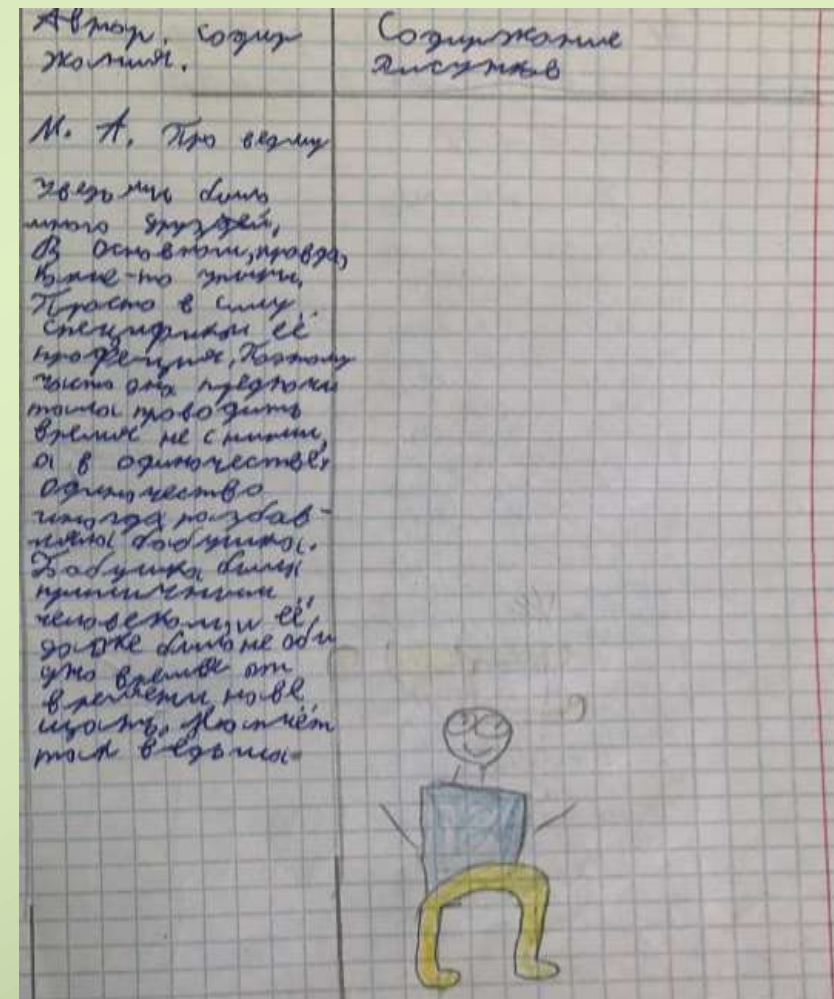 Автор. содир
жания.
Содиржание
рисунков
М. А. Про ведму
У ведьмы было
много друзей,
В основном, правда,
какие-то упыри,
Просто в силу
специфики её
професция, Поэтому
часто она предпочи
тала проводить
время не с ними,
а в одиночестве,
одиночество
иногда розбав-
ляла бабушка.
Бабушка была
приличним
человеком и её
даже было не оби
дно время от
времени наве
щать.
там ведьма